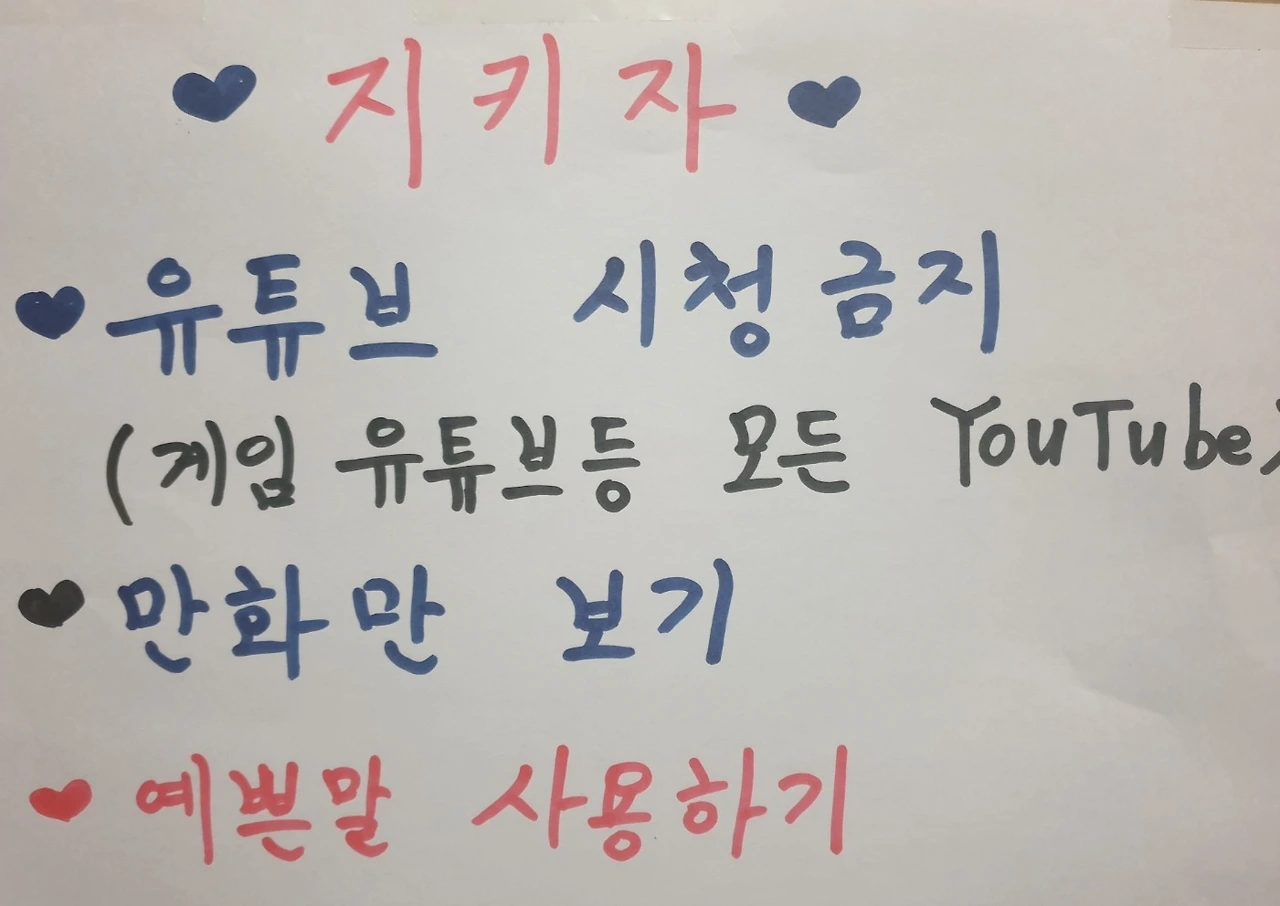 ♥ 지키자 ♥
♥ 유튜브 시청금지
(게임 유튜브등 모든 YouTube)
♥ 만화만 보기
♥ 예쁜말 사용하기